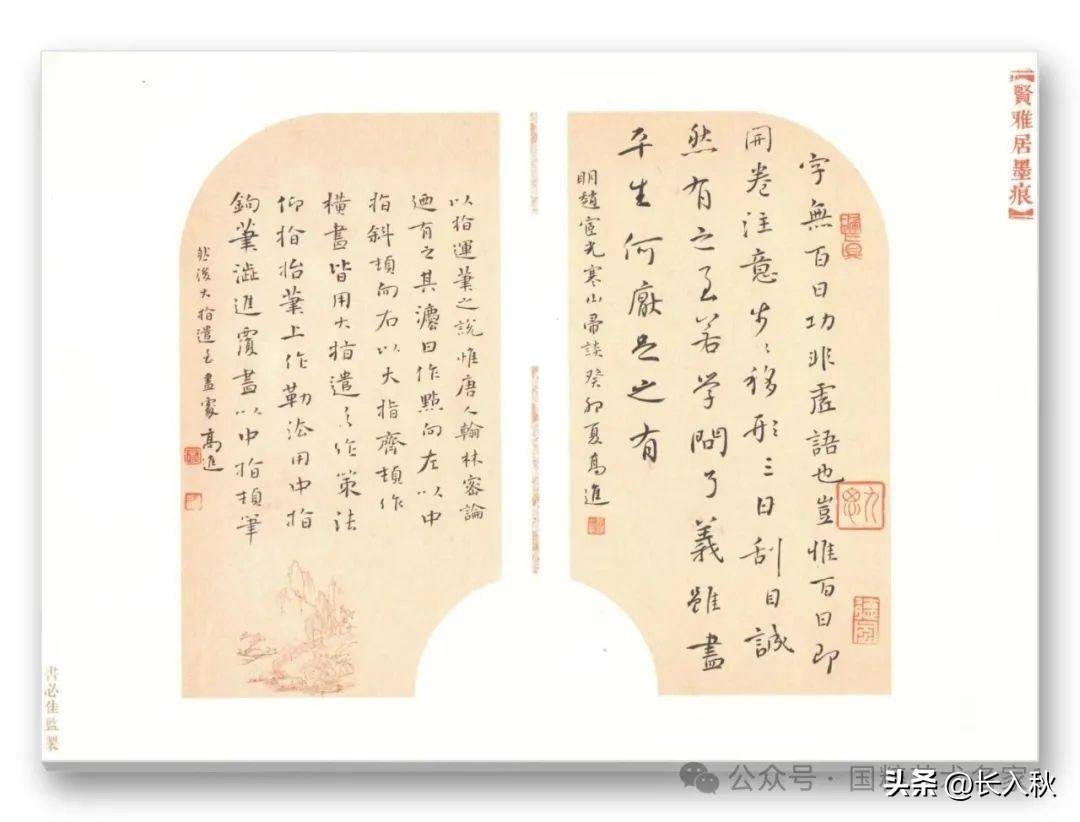 【賢雅居墨痕】
字無百日功非虛語也豈惟百日即
開卷注意步〻移形三日刮目誠
然有之至若学問了義雖盡
平生何厭足之有
明趙宦光寒山帚談癸卯夏高進
以指運筆之說惟唐人翰林密論
迺有之其灋曰作點向左以中
指斜頓向右以大指齊頓作
橫畫皆用大指遣之作策法
仰指抬筆上作勒法用中指
鉤筆澁進覆畫以中指頓筆
然後大指遣至畫處高進
書必佳監製
公众号·国粹艺术名家
头条@长入秋